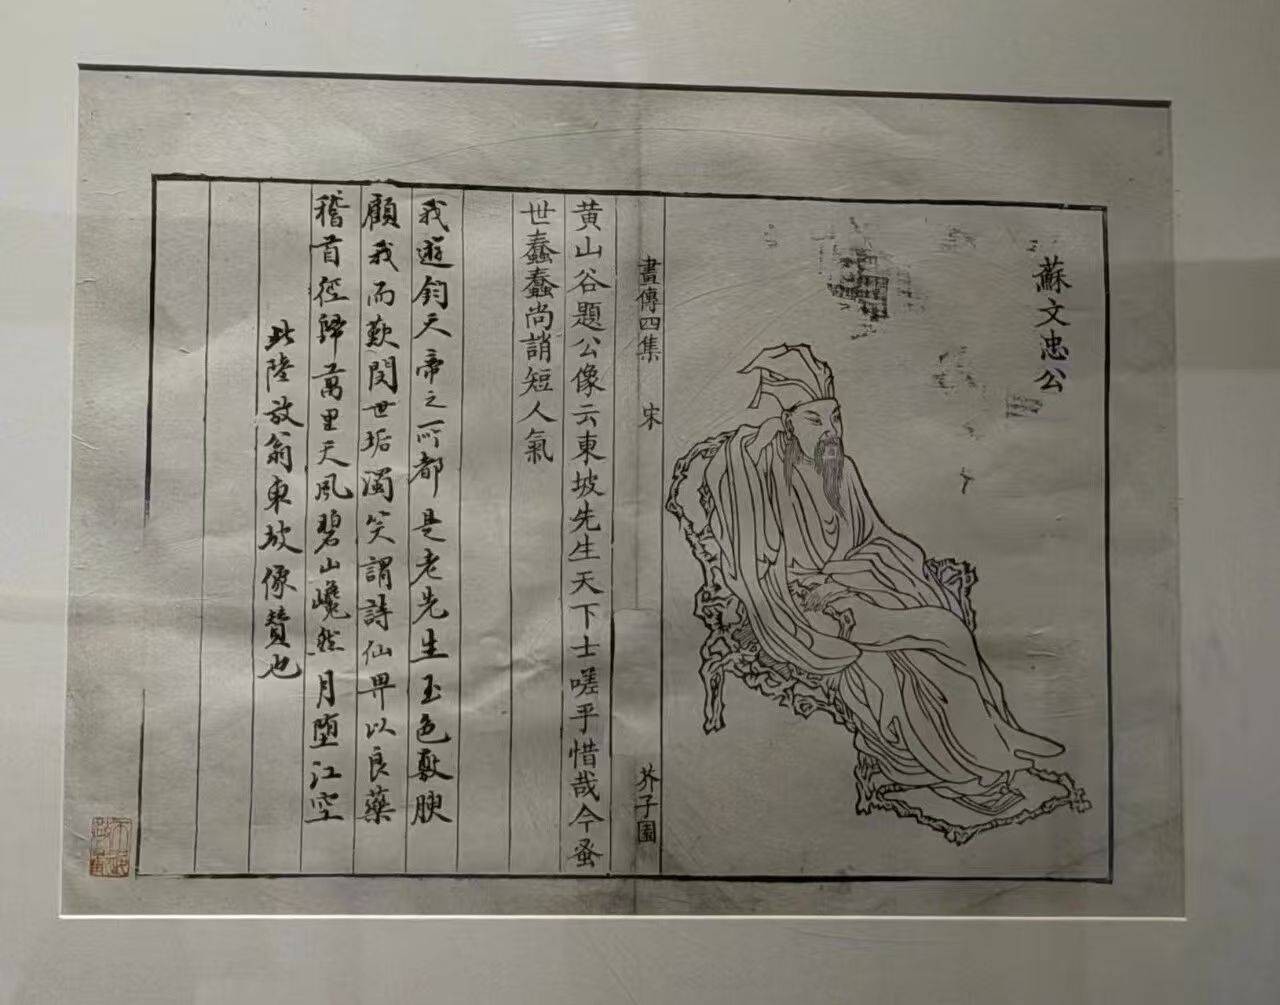 蘇文忠公
畫傳四集 宋 芥子園
黃山谷題公像云東坡先生天下士嗟乎惜哉今蚤
世蠢蠢尚誚短人氣
我遊鈞天帝之所都是老先生玉色敷腴
顧我而歎閔世垢濁笑謂詩仙畀以良藥
稽首徑歸萬里天風碧山巉然月墮江空
此陸放翁東坡像贊也